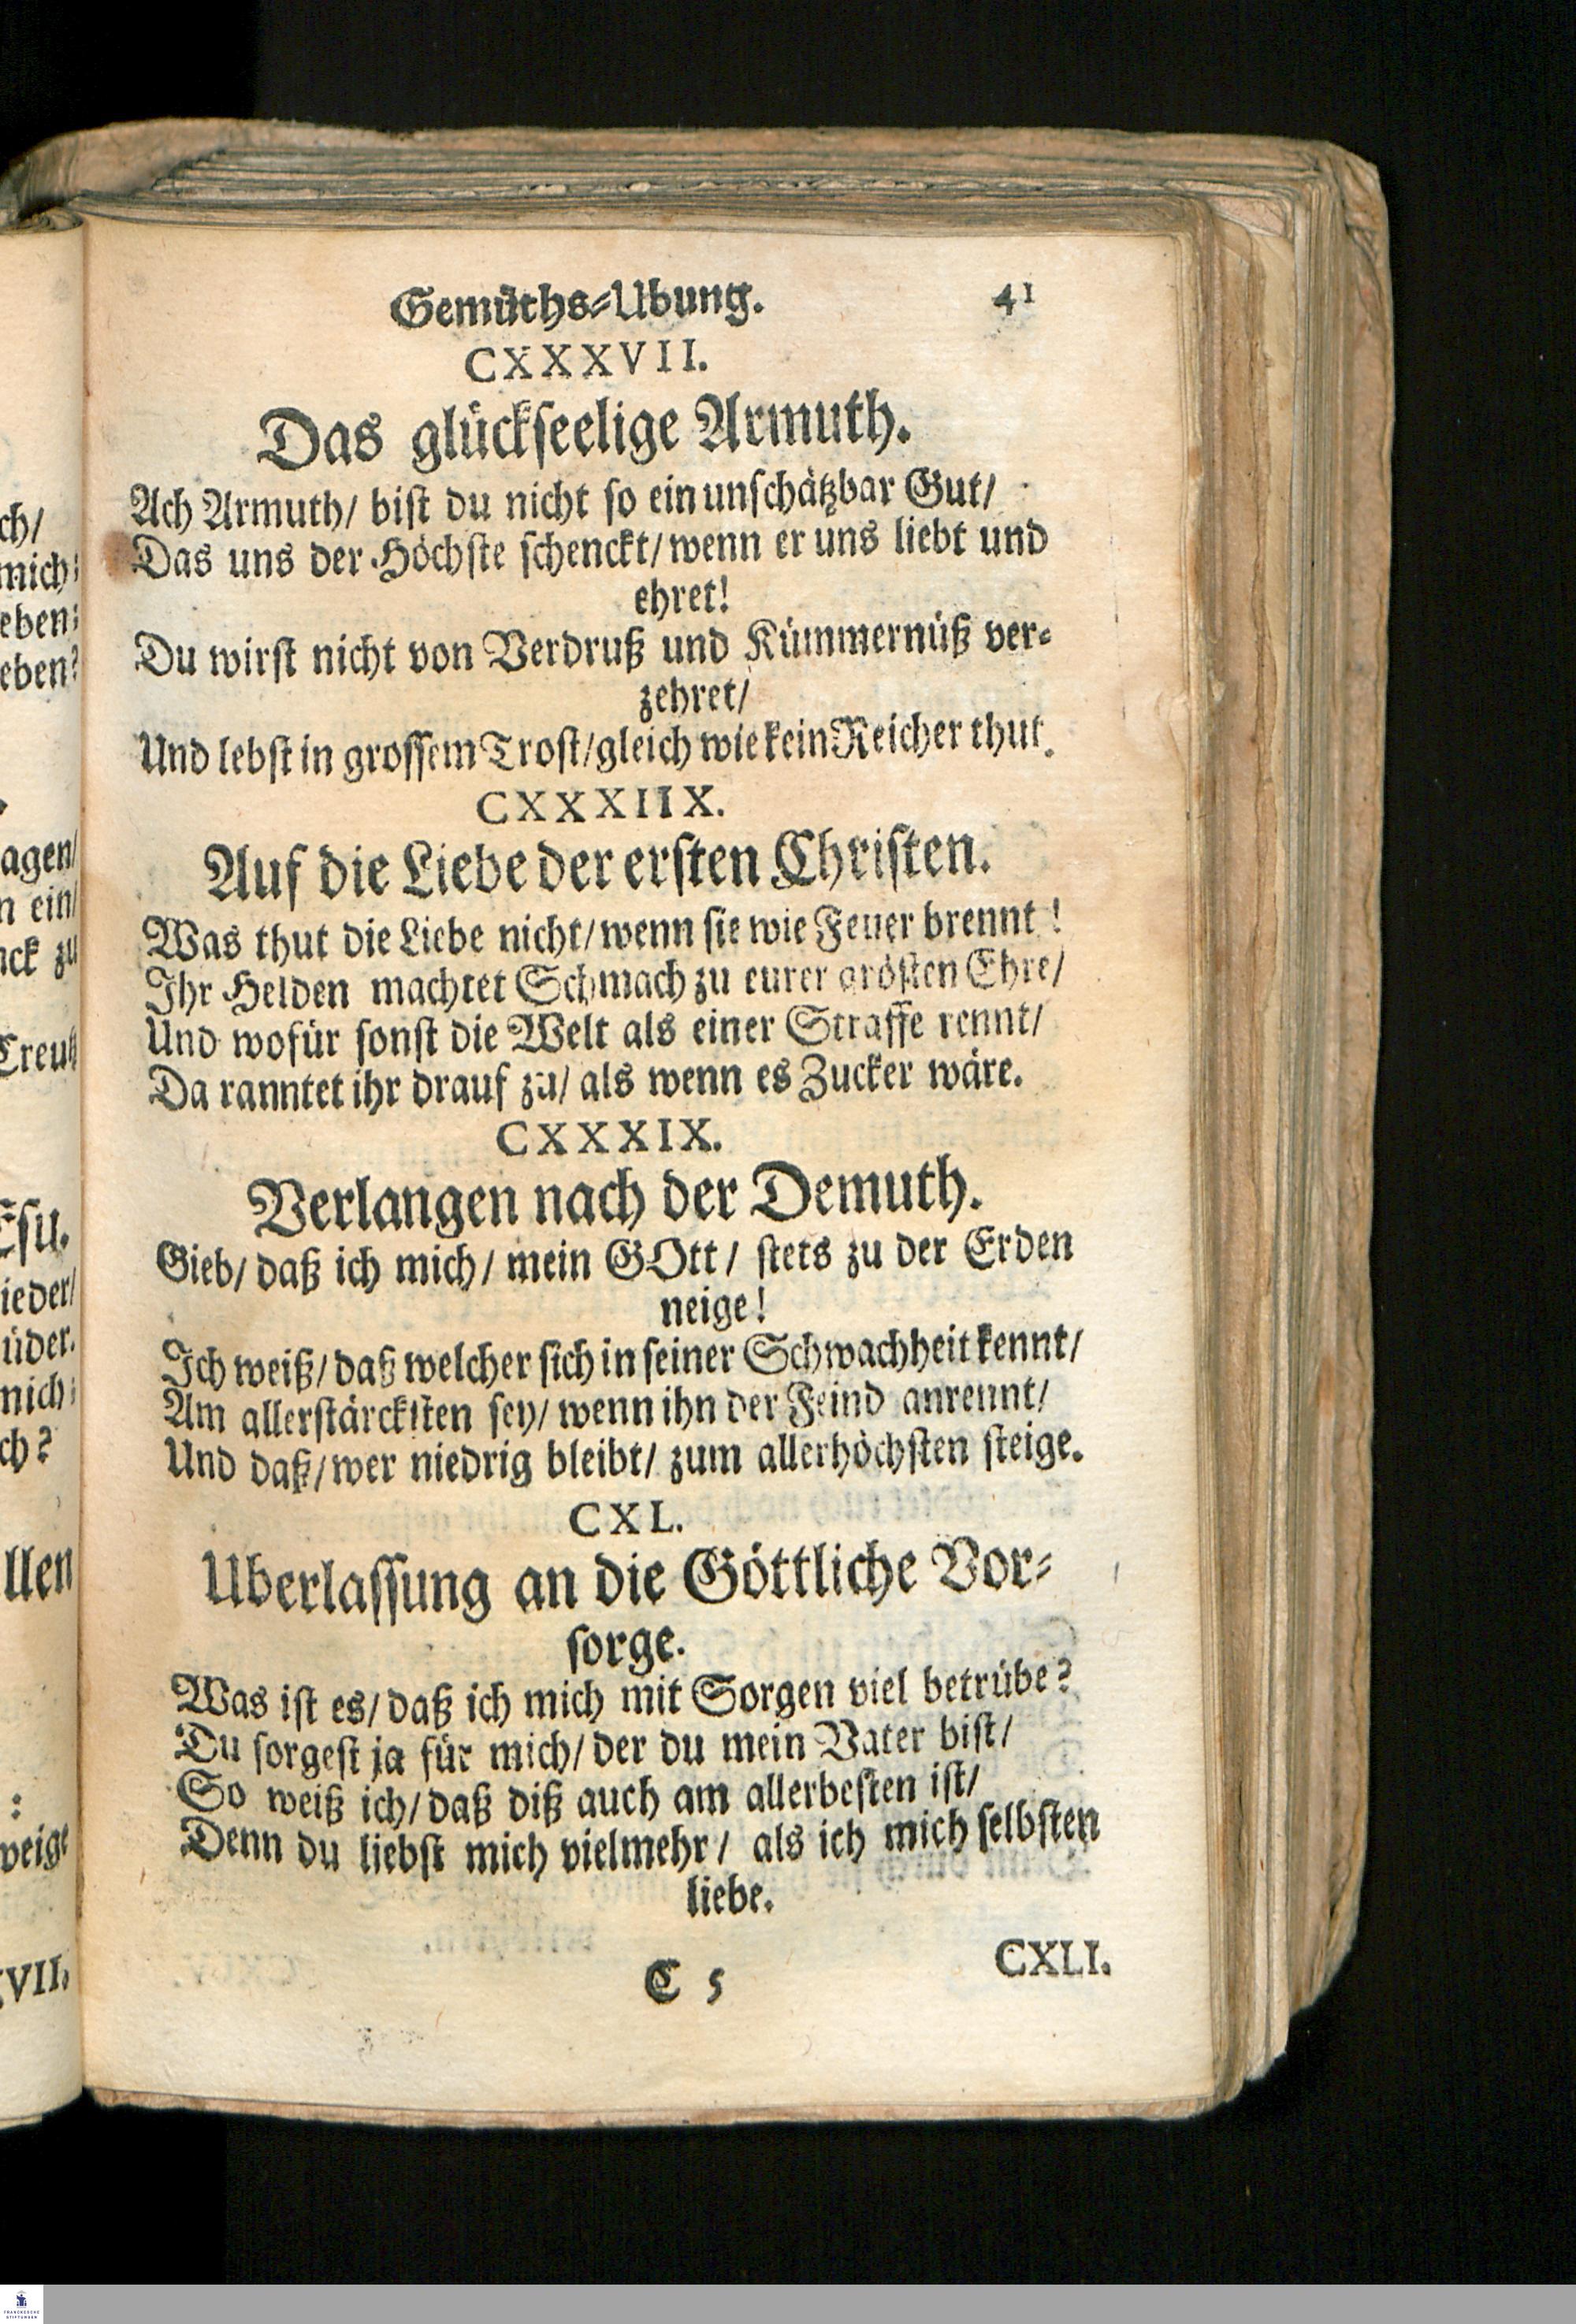 Gemüths-Ubung. 41
CXXXVII.
Das glückseelige Armuth.
Ach Armuth/ bist du nicht so ein unschätzbar Gut/
Das uns der Höchste schenckt/ wenn er uns liebt und
ehret!
Du wirst nicht von Verdruß und Kümmernüß ver-
zehret/
Und lebst in grossem Trost/ gleich wie kein Reicher thut.
CXXXIIX.
Auf die Liebe der ersten Christen.
Was thut die Liebe nicht/ wenn sie wie Feuer brennt!
Ihr Helden machtet Schmach zu eurer grösten Ehre/
Und wofür sonst die Welt als einer Straffe rennt/
Da ranntet ihr drauf zu/ als wenn es Zucker wäre.
CXXXIX.
Verlangen nach der Demuth.
Gieb/ daß ich mich/ mein GOtt/ stets zu der Erden
neige!
Ich weiß/ daß welcher sich in seiner Schwachheit kennt/
Am allerstärcksten sey/ wenn ihn der Feind anrennt/
Und daß/ wer niedrig bleibt/ zum allerhöchsten steige.
CXL.
Uberlassung an die Göttliche Vor-
sorge.
Was ist es/ daß ich mich mit Sorgen viel betrübe?
Du sorgest ja für mich/ der du mein Vater bist/
So weiß ich/ daß diß auch am allerbesten ist/
Denn du liebst mich vielmehr/ als ich mich selbsten
liebe.
C 5 CXLI.
ch/
mich:
eben:
eben?
agen/
n ein/
nck zu
Creutz
Esu.
ieder/
üder.
mich:
ch?
llen
:
weige
VII.
FRANCKESCHE
STIFTUNGEN